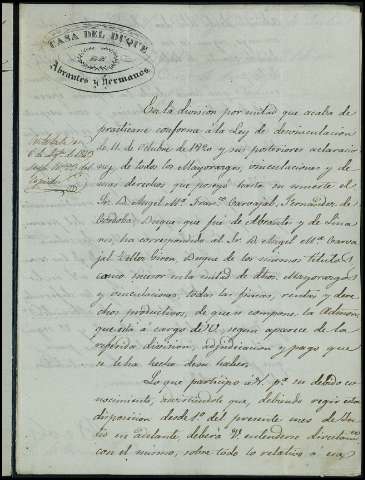 CASA DEL DUQUE
DE
Abrantes y hermanos
En la división por mitad que acaba de
practicarse conforme á la Ley de desvinculacion
de 11 de Octubre de 1820 y sus posteriores aclaracio
nes, de todos los Mayorazgos, vinculaciones y de
mas derechos que poseyó hasta su muerte el
Sr. D. Angel Mª. Franco. Carvajal, Fernandez de
Cordoba, Duque que fué de Abrantes y de Lina
res, ha correspondido al Sr. D. Angel Mª. Carva
jal Tellez Giron, Duque de los mismos titulos
como sucesor en la mitad de dhos. Mayorazgos
y vinculaciones, todas las fincas, rentas y dere
chos productivos, de que se compone la Admon.
que está á cargo de V. segun aparece de la
referida division, adjudicacion y pago que
se le ha hecho de su haber.
Lo que participo á V. pª. su debido co
nocimiento, advirtiendole que, debiendo regir esta
disposicion desde 1º. del presente mes de
en adelante, deberá V. entenderse directamte.
con el mismo, sobre todo lo relativo á esa